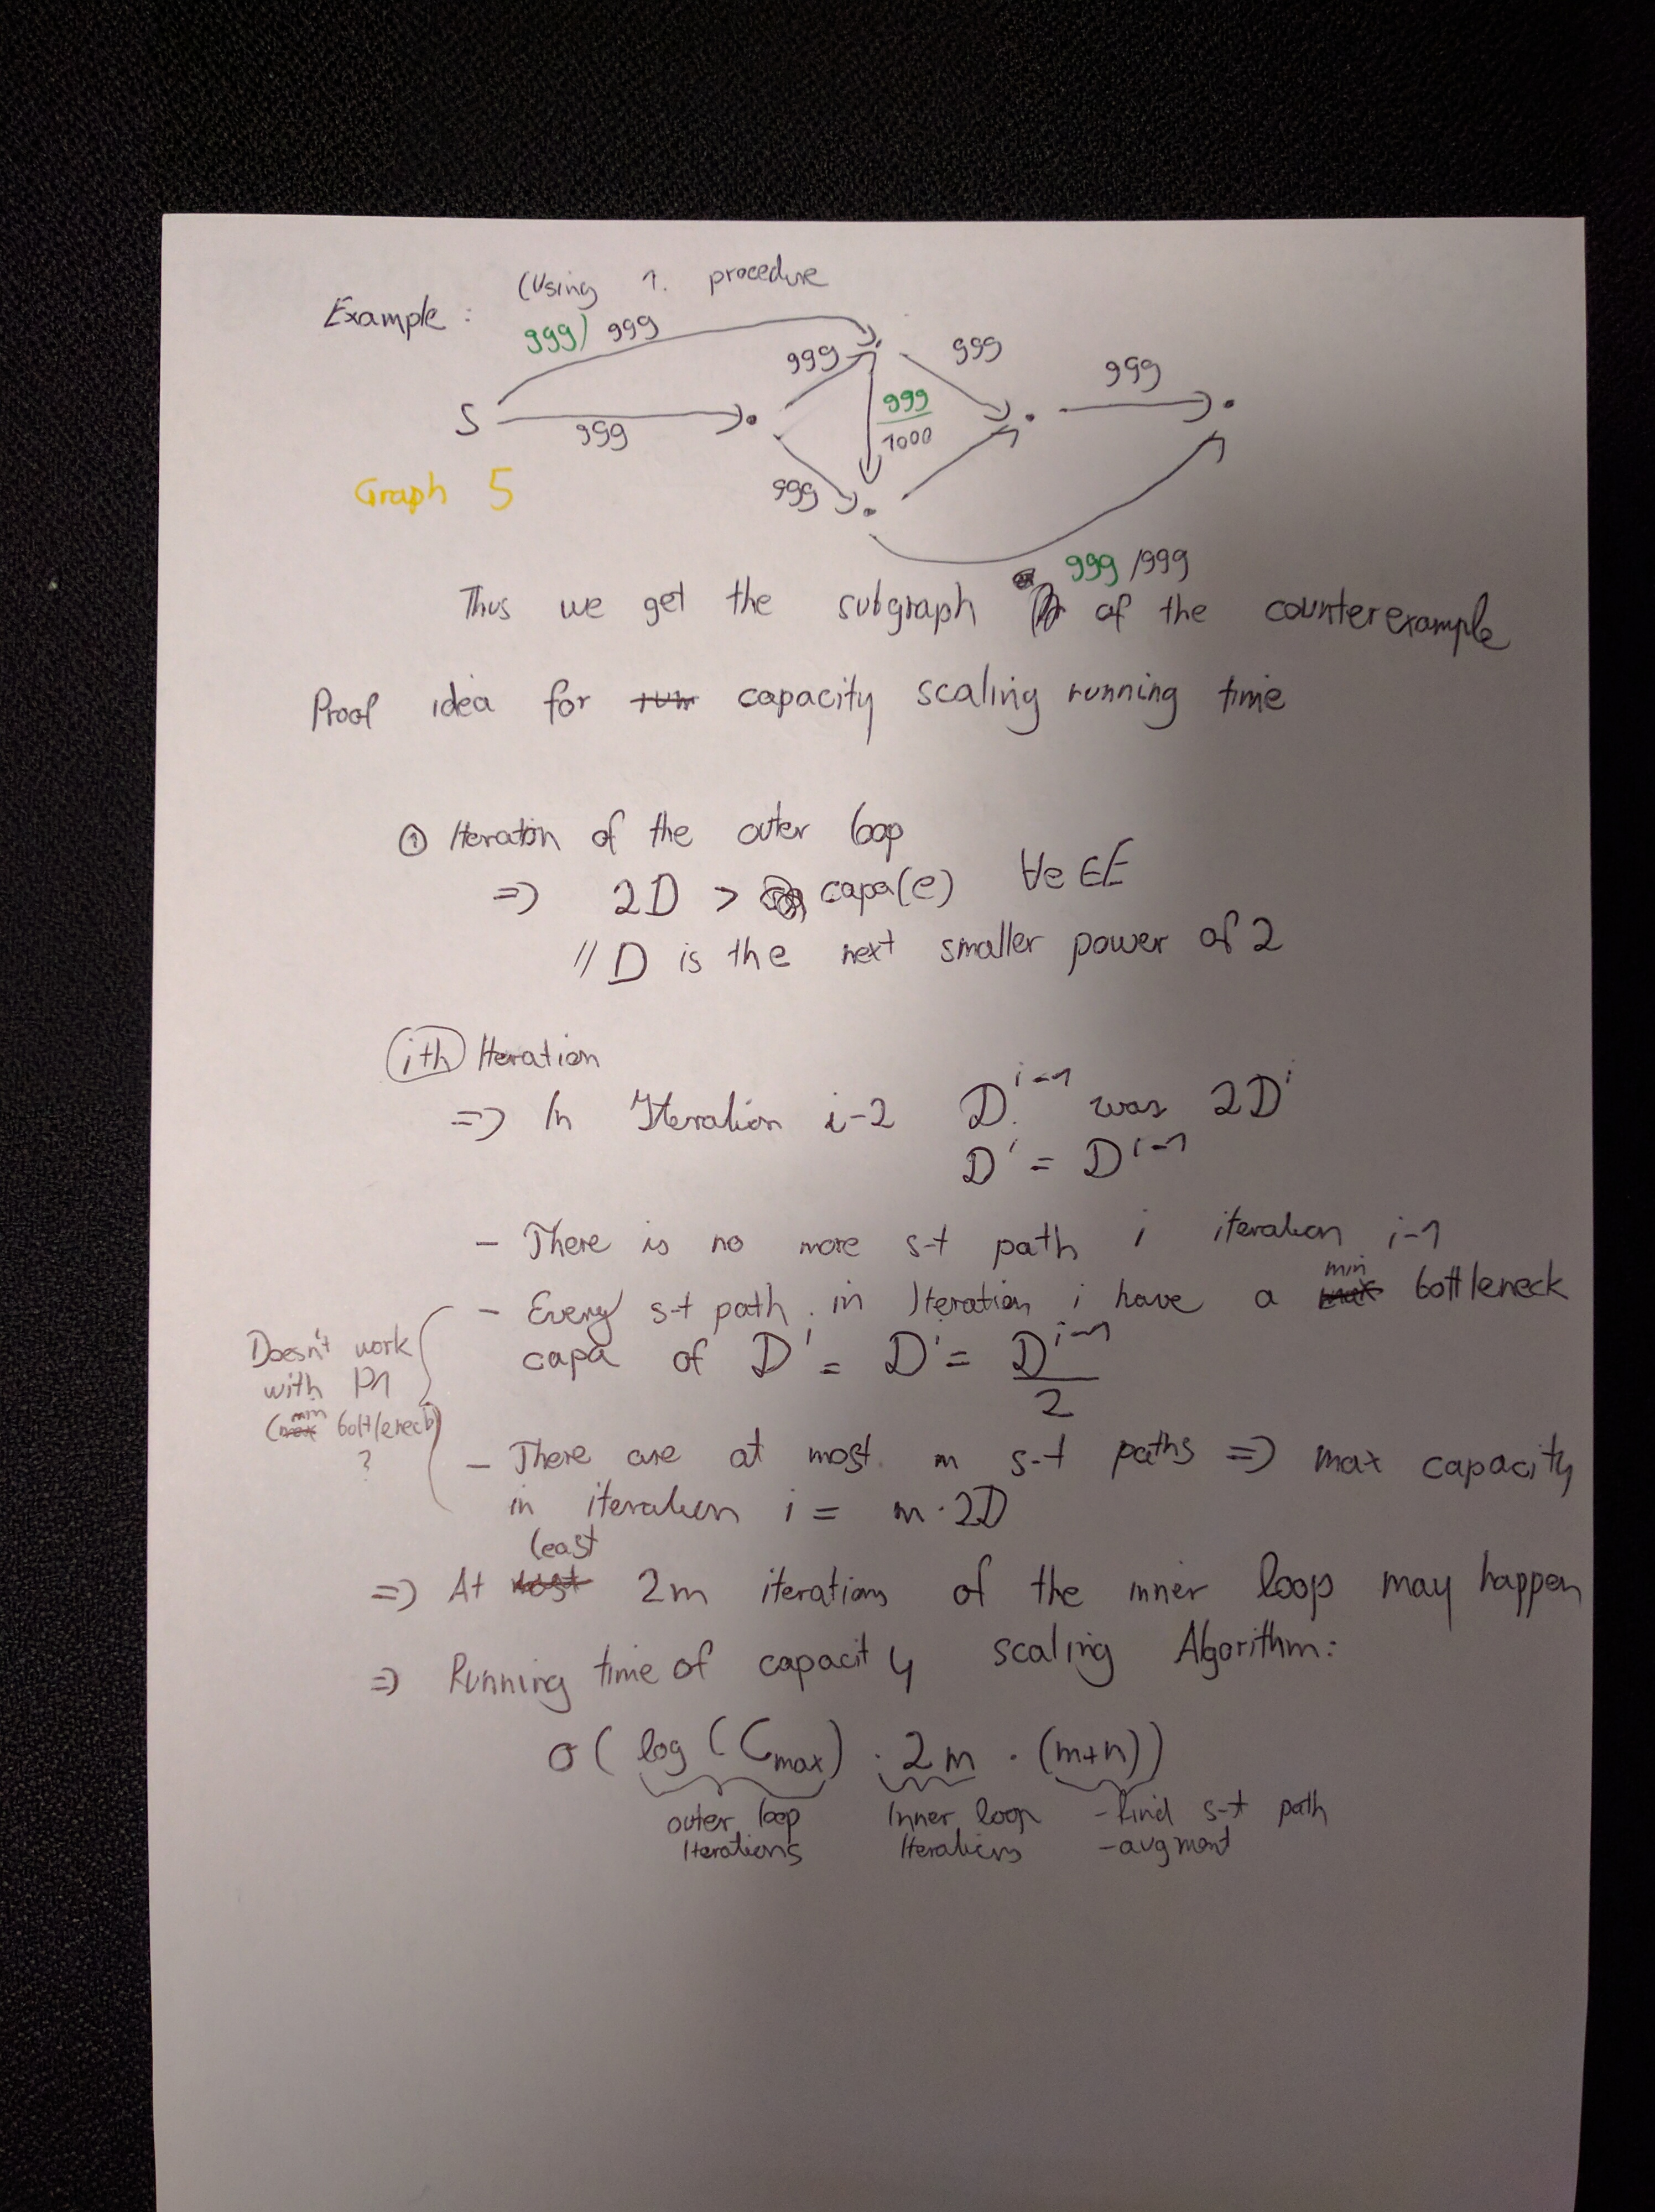 (Using 1. procedure
Example:
999) 999
999
999
999
999
1000
999
999
Graph 5
999
999 /999
Thus we get the subgraph of the counterexample
Proof idea for run capacity scaling running time
① Iteration of the outer loop
=> 2D > capa(e) ∀e ∈ E
// D is the next smaller power of 2
ith Iteration
=> In Iteration i-2 D^{i-1} was 2D^i
D' = D^{i-1}
- There is no more s-t path i iteration i-1
min
- Every s-t path in Iteration i have a max bottleneck
capa of D' = D^i = D^{i-1}
2
Doesn't work
with P1
min
(max bottleneck)
?
- There are at most m s-t paths => max capacity
in iteration i = m · 2D
least
=> At most 2m iterations of the inner loop may happen
=> Running time of capacity scaling Algorithm:
O( log (C_max) · 2m · (m+n))
outer loop
Iterations
Inner loop
Iterations
- find s-t path
- augment